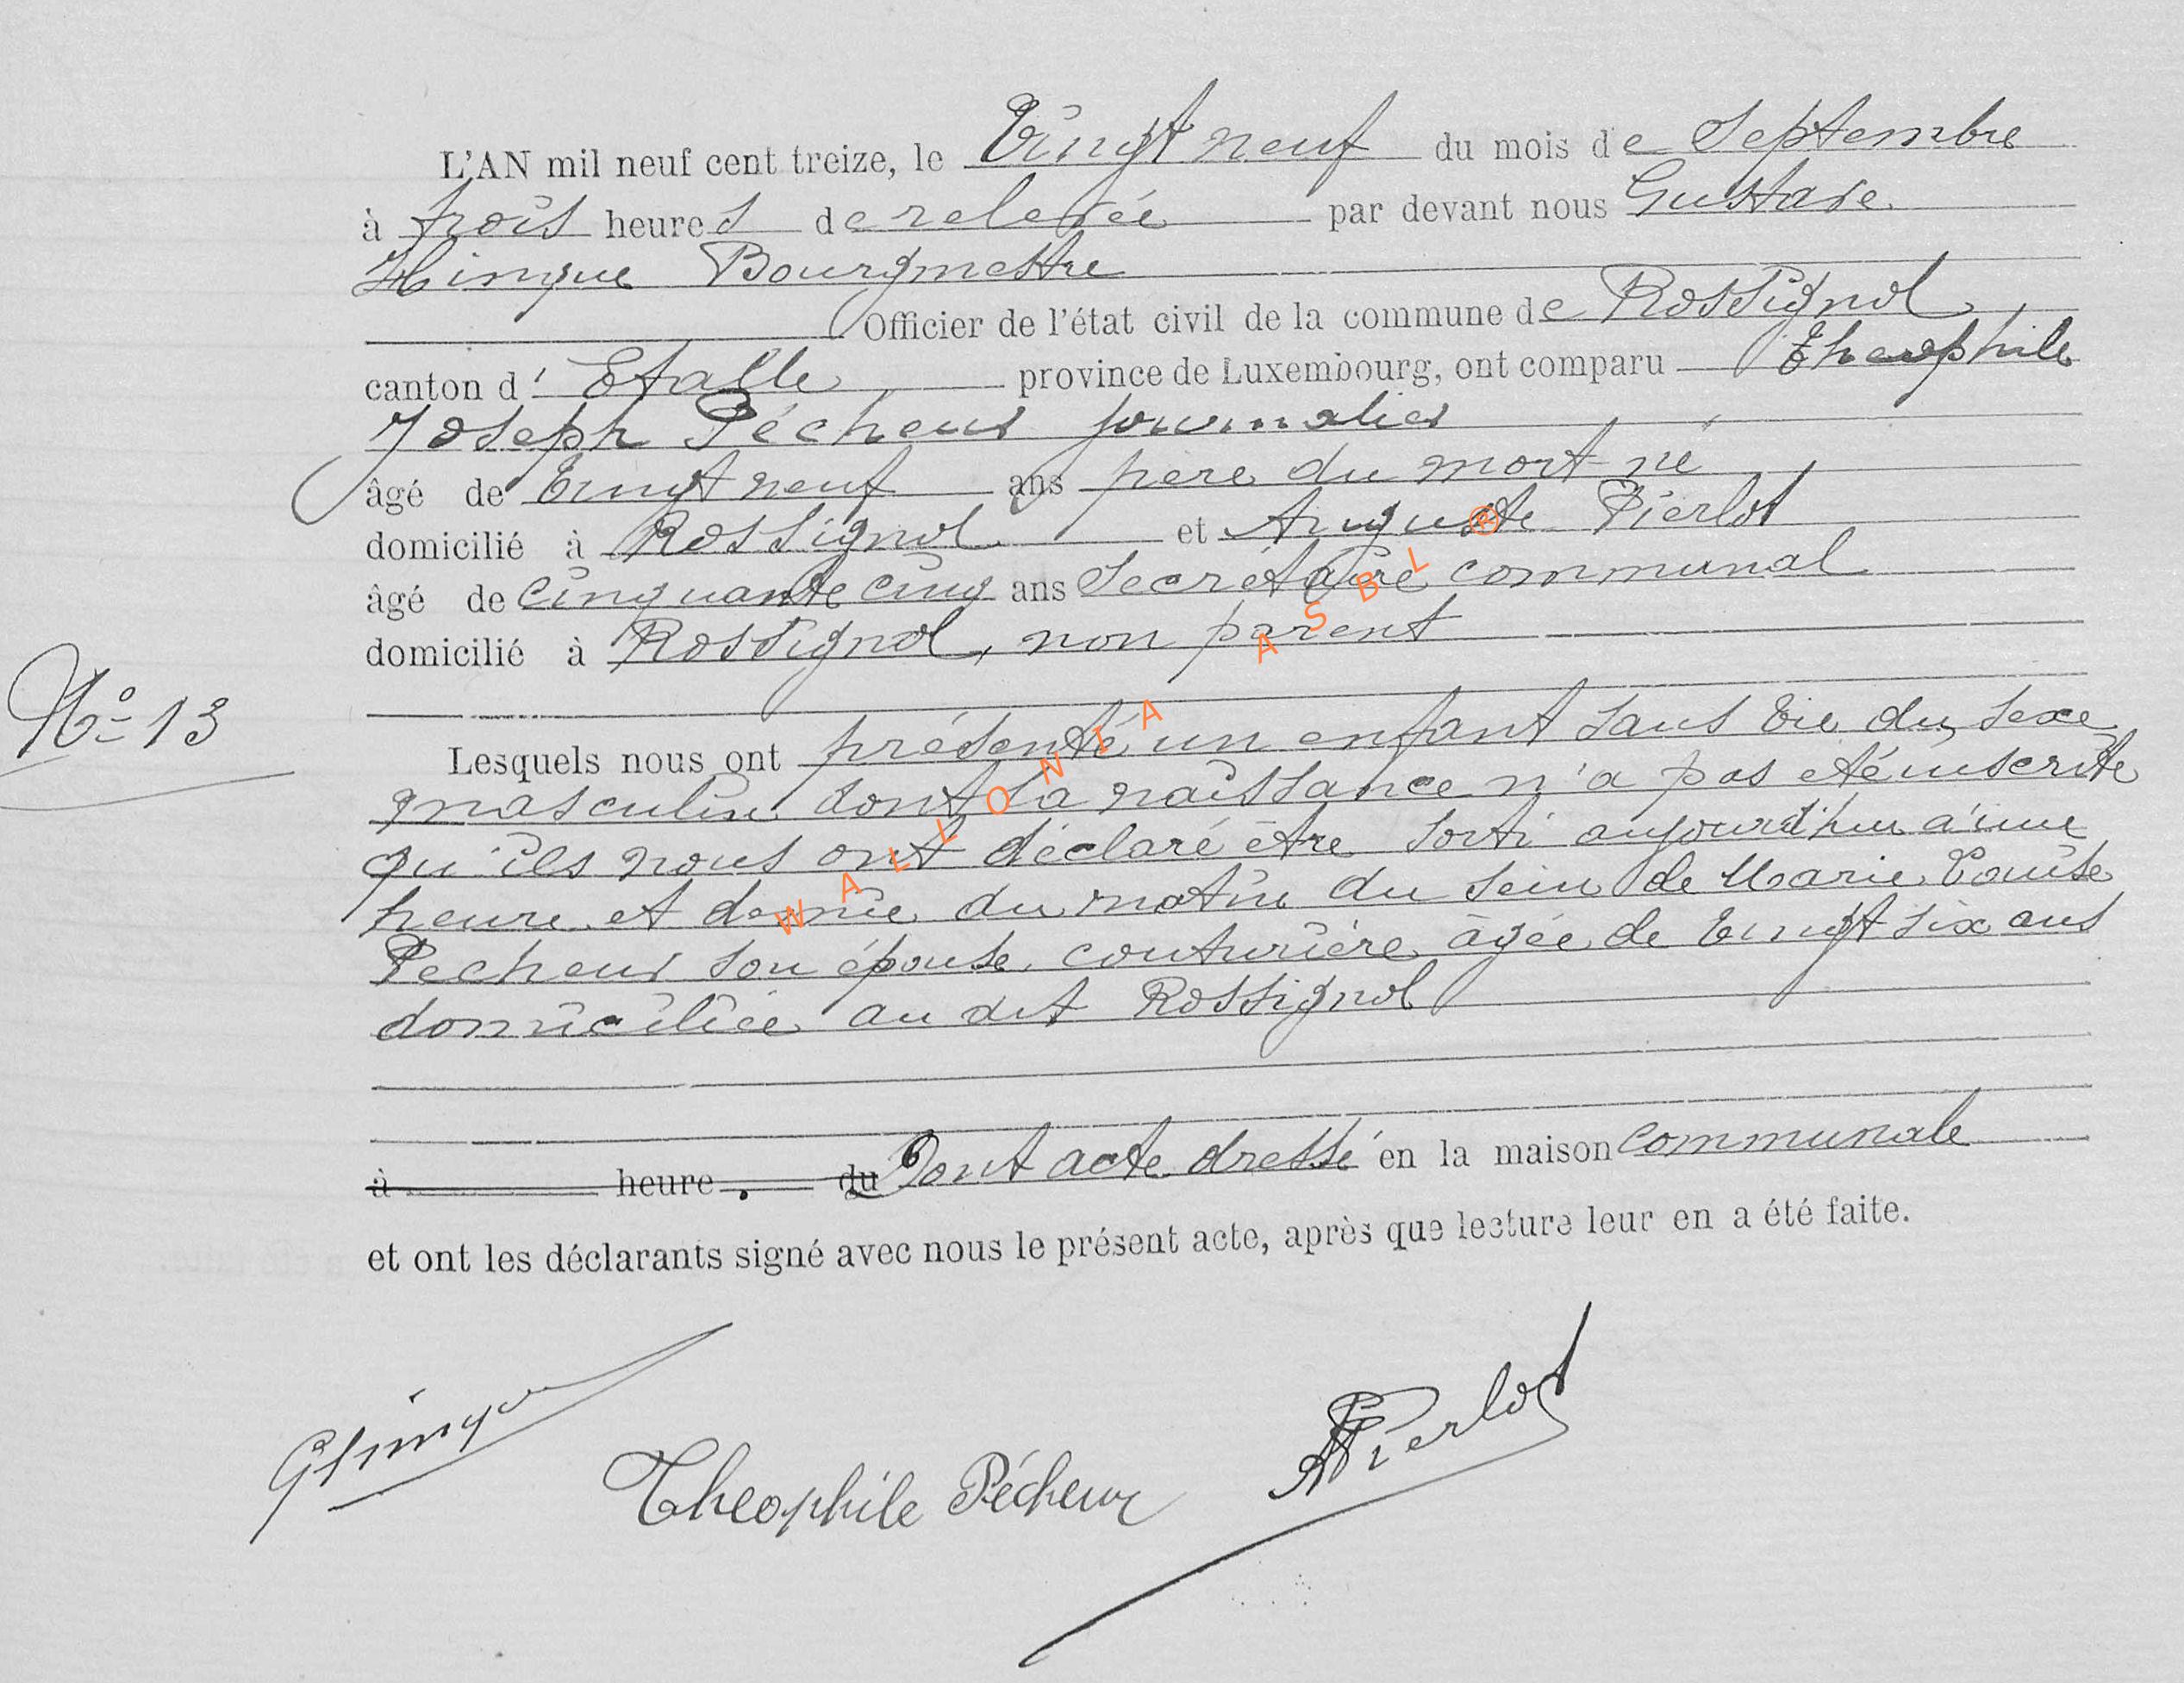 L'AN mil neuf cent treize, le Vingt neuf du mois de Septembre
à trois heures de relevée par devant nous Gustave
Hinque Bourgmestre
Officier de l'état civil de la commune de Rossignol
canton d'Etalle province de Luxembourg, ont comparu Theophile
Joseph Pécheur journalier
âgé de Vingt neuf ans père du mort né
domicilié à Rossignol et Auguste Pierlot
âgé de cinquante cinq ans Secrétaire communal
domicilié à Rossignol, non parent
N° 13
Lesquels nous ont présenté un enfant sans vie du sexe
masculin dont la naissance n'a pas été inscrite
qu'ils nous ont déclaré être sorti aujourd'hui à une
heure et demie du matin du sein de Marie Louise
Pecheur son épouse couturière âgée de vingt six ans
domiciliée au dit Rossignol
à heure du Dont acte dressé en la maison communale
et ont les déclarants signé avec nous le présent acte, après que lecture leur en a été faite.
GHinque
Theophile Pécheur
APierlot
WALLONIA ASBL ®